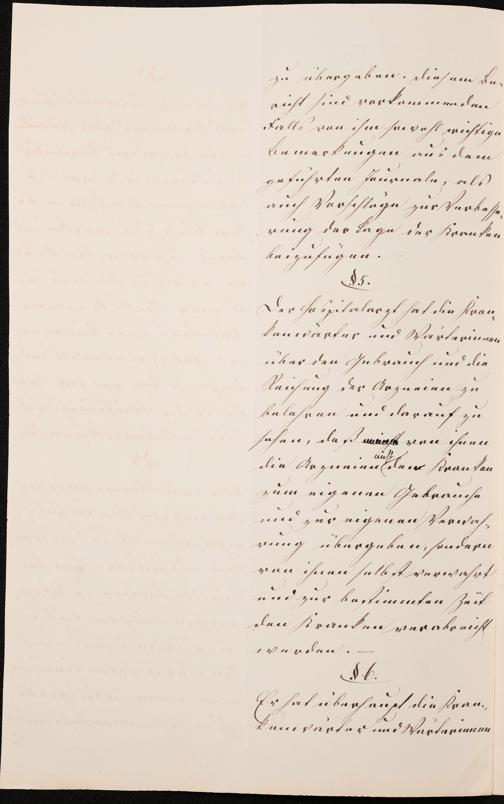 zu übergeben. Diesem Be-
richt sind vorkommenden
Falls von ihm sowohl wichtige
Bemerkungen aus dem
geführten Journale, als
auch Vorschläge zur Verbesse-
rung der Lage der Kranken
beizufügen. —
§ 5.
Der Hospitalarzt hat die Kran-
kenwärter und Wärterinnen
über den Gebrauch und die
Reichung der Arzneien zu
belehren und darauf zu
sehen, daß von ihnen
die Arzneien nicht den Kranken
zum eigenen Gebrauche
und zur eigenen Verwah-
rung übergeben, sondern
von ihnen selbst verwahrt
und zur bestimmten Zeit
den Kranken verabreicht
werden. —
§ 6.
Er hat überhaupt die Kran-
kenwärter und Wärterinnen